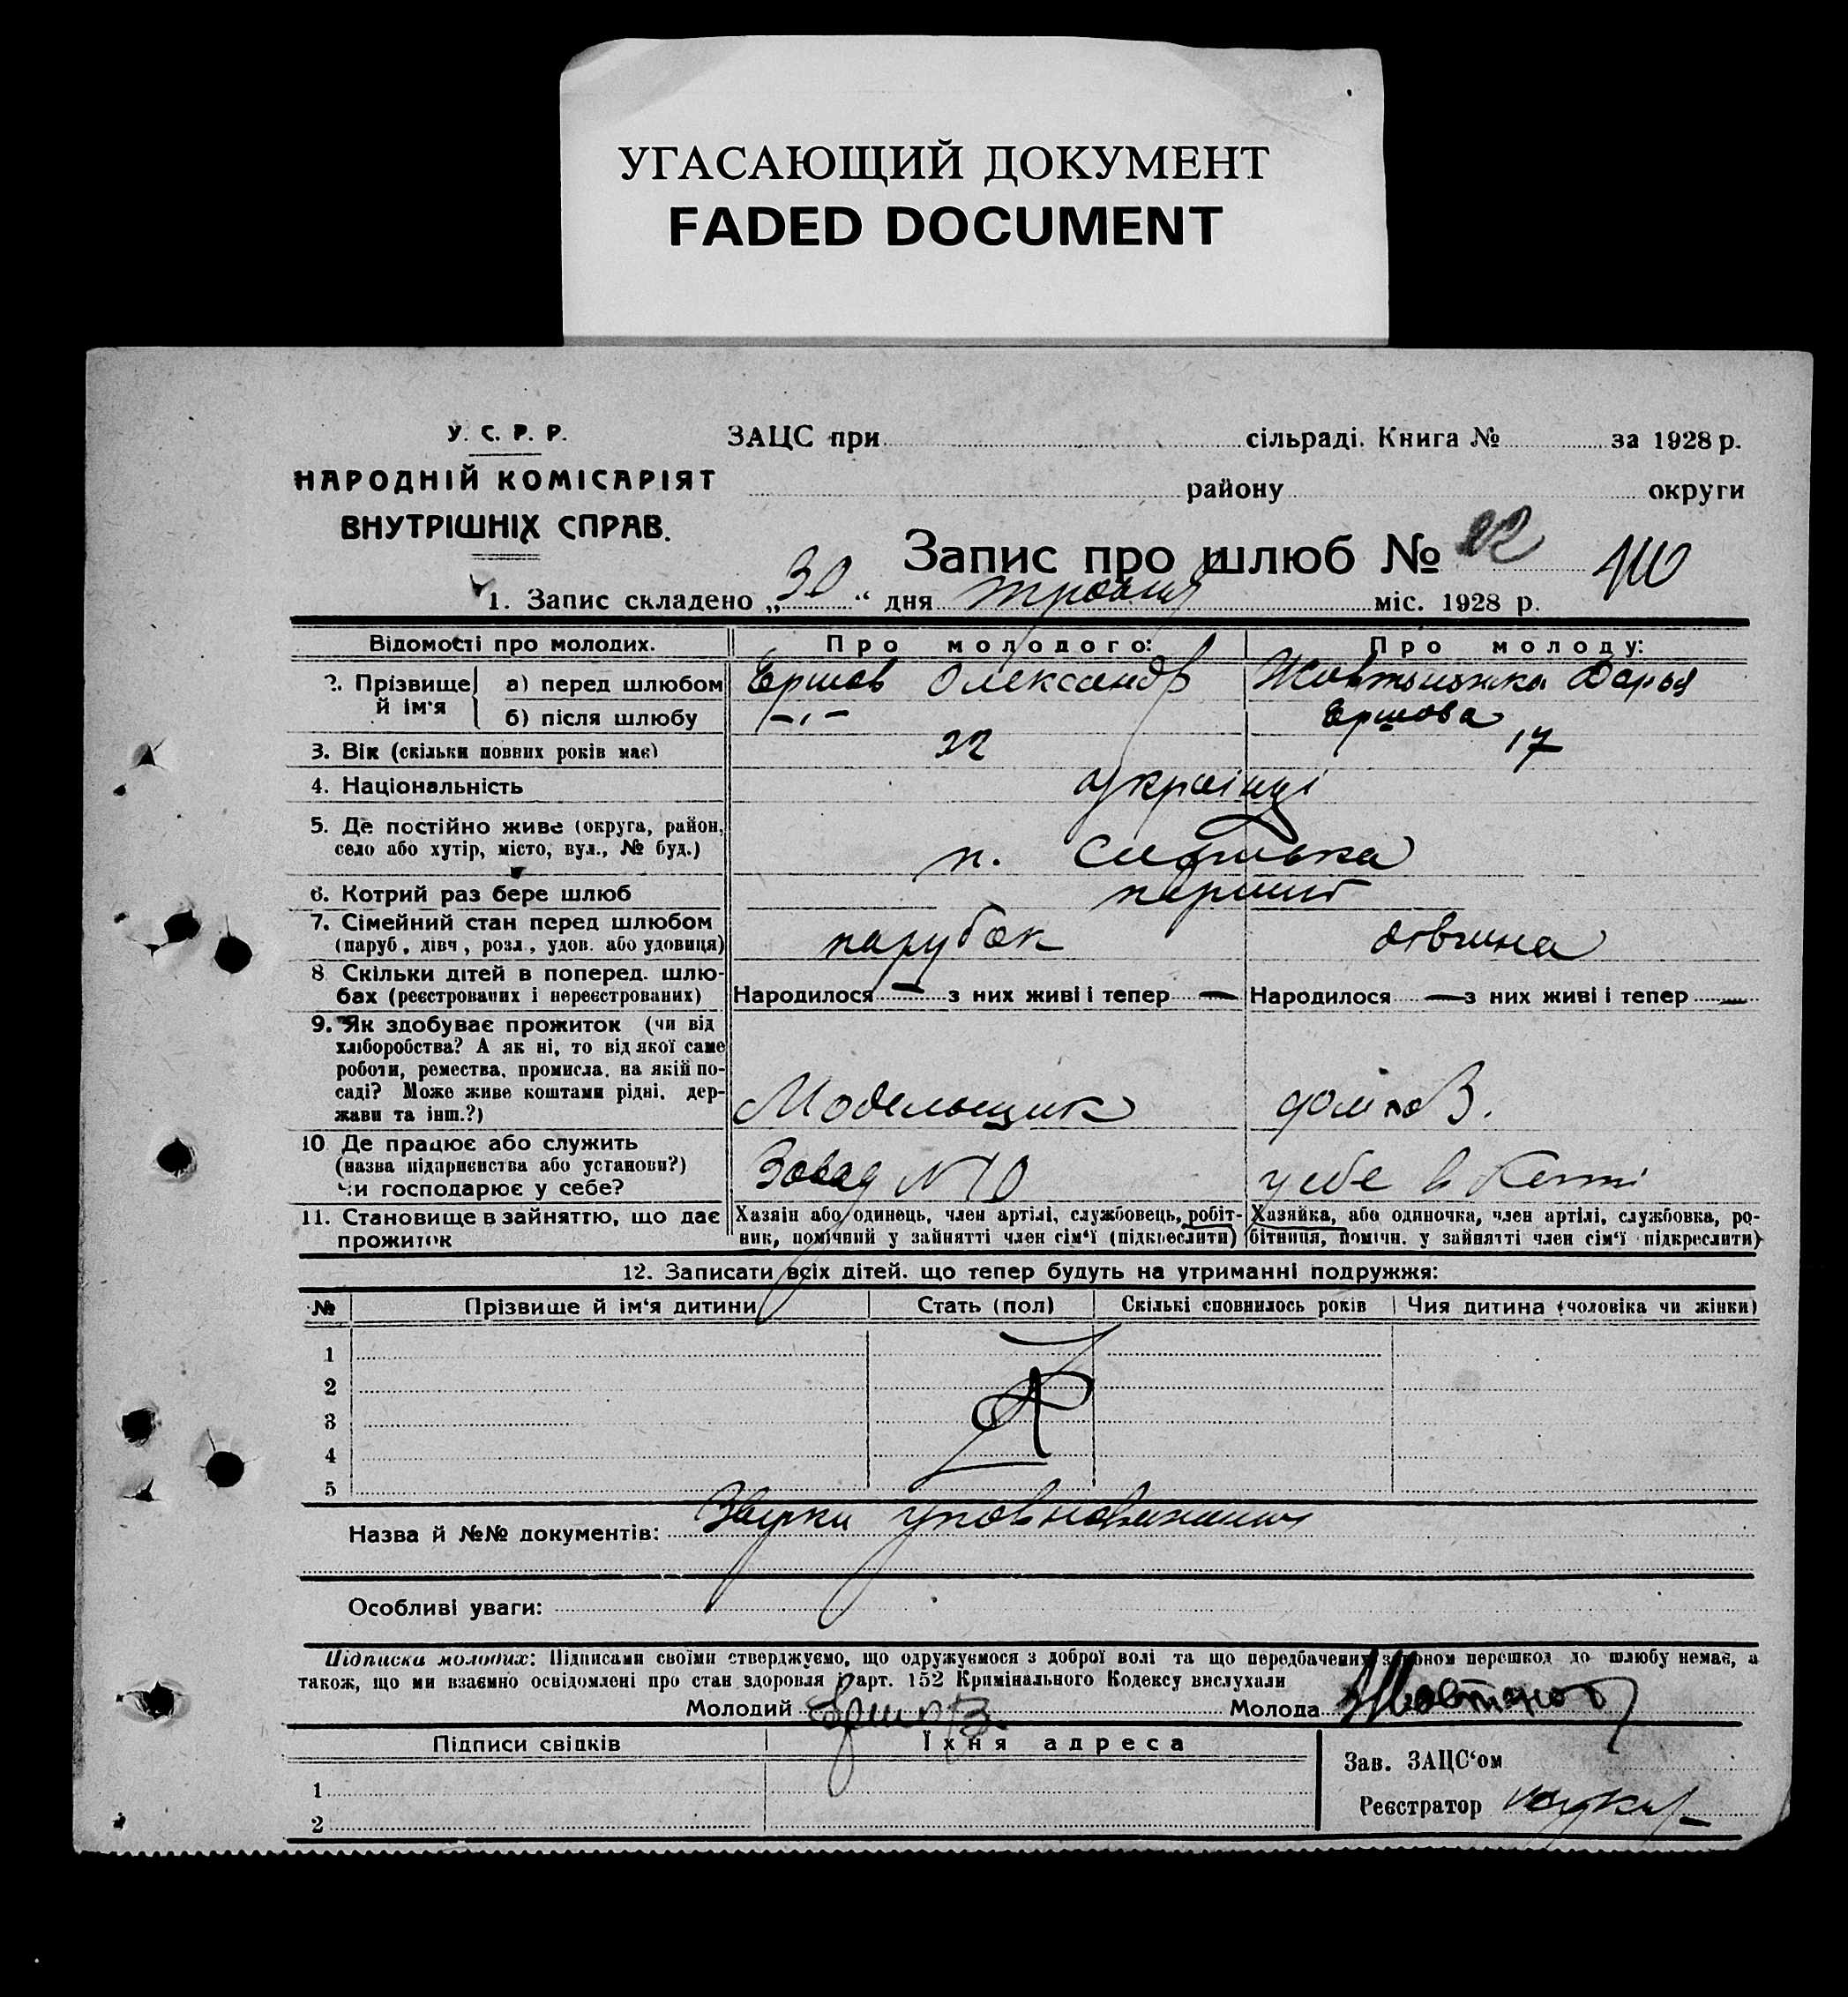 УГАСАЮЩИЙ ДОКУМЕНТ
FADED DOCUMENT
У. С. Р. Р.
НАРОДНІЙ КОМІСАРІЯТ
ВНУТРІШНІХ СПРАВ.
ЗАЦС при сільраді. Книга № за 1928 р.
району округи
Запис про шлюб № 22
1. Запис складено „30“ дня травня міс. 1928 р.
Відомості про молодих. Про молодого: Про молоду:
2. Прізвище й ім'я а) перед шлюбом Ершов Олександр Дарья
б) після шлюбу -"- Ершова
3. Вік (скільки повних років має) 22 17
4. Національність українці
5. Де постійно живе (округа, район,
село або хутір, місто, вул., № буд.) п.
6. Котрий раз бере шлюб перший
7. Сімейний стан перед шлюбом
(паруб., дівч., розл., удов. або удовиця) парубок дівчина
8 Скільки дітей в поперед. шлю-
бах (реєстрованих і нереєстрованих) Народилося — з них живі і тепер — Народилося — з них живі і тепер —
9. Як здобуває прожиток (чи від
хліборобства? А як ні, то від якої саме
роботи, ремества, промисла, на якій по-
саді? Може живе коштами рідні, дер-
жави та інш.?) Модельщик
10 Де працює або служить
(назва підприємства або установи?)
Чи господарює у себе? Завад №10 у себе в
11. Становище в зайняттю, що дає
прожиток
Хазяін або одинець, член артілі, службовець, робіт-
ник, помічний у зайнятті член сім'ї (підкреслити)
Хазяйка, або одиночка, член артілі, службовка, ро-
бітниця, помічн. у зайнятті член сім'ї підкреслити)
12. Записати всіх дітей. що тепер будуть на утриманні подружжя:
№ Прізвище й ім'я дитини Стать (пол) Скількі сповнилось років Чия дитина (чоловіка чи жінки)
1
2
3
4
5
Назва й №№ документів:
Особливі уваги:
Підписка молодих: Підписами своїми стверджуємо, що одружуємося з доброї волі та що передбачених законом перешкод до шлюбу немає, а
також, що ми взаємно освідомлені про стан здоровля і арт. 152 Кримінального Кодексу вислухали
Молодий Ершов Молода
Підписи свідків Їхня адреса
1
2
Зав. ЗАЦС'ом
Реєстратор